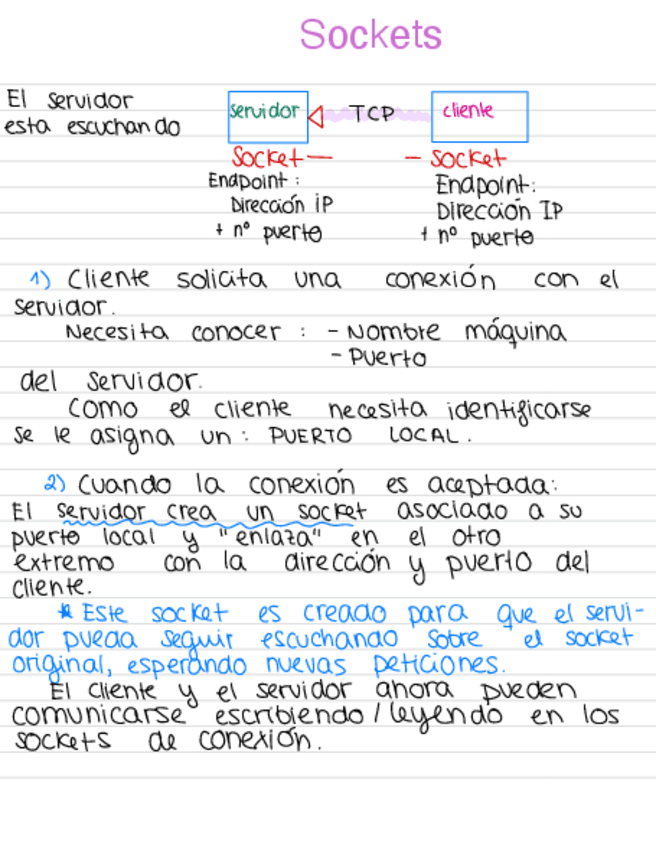 Sockets
El servidor
esta escuchando
servidor TCP cliente
Socket — — Socket
Endpoint : Endpoint:
Dirección iP Dirección IP
+ nº puerto + nº puerto
1) Cliente solicita una conexión con el
servidor.
Necesita conocer : - Nombre máquina
- Puerto
del servidor.
Como el cliente necesita identificarse
se le asigna un : PUERTO LOCAL.
2) Cuando la conexión es aceptada:
El servidor crea un socket asociado a su
puerto local y "enlaza" en el otro
extremo con la dirección y puerto del
cliente.
* Este socket es creado para que el servi-
dor pueda seguir escuchando sobre el socket
original, esperando nuevas peticiones.
El cliente y el servidor ahora pueden
comunicarse escribiendo / leyendo en los
sockets de conexión.